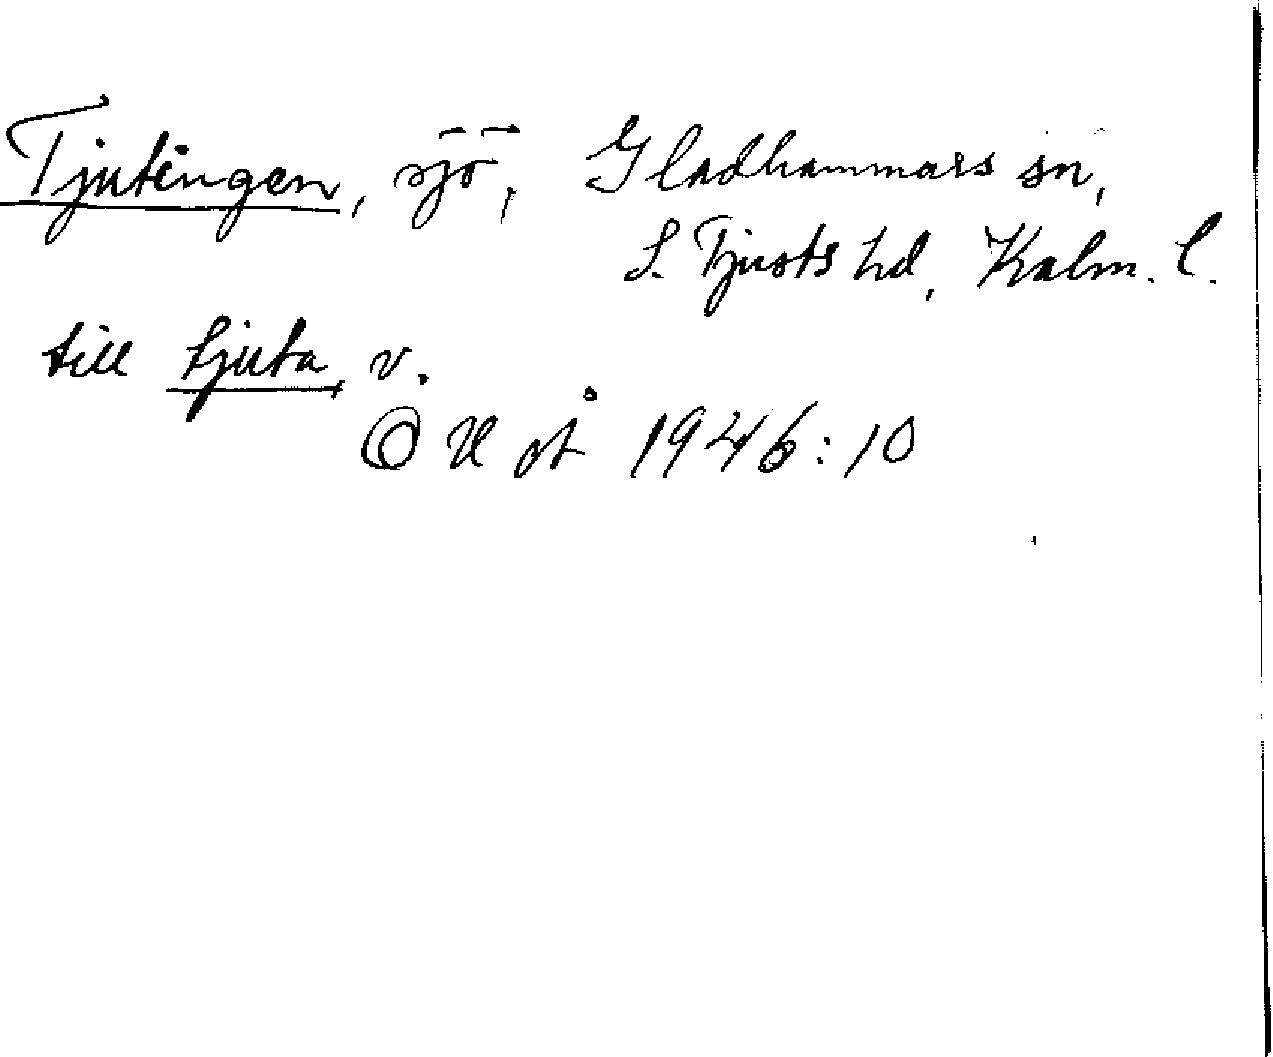 Tjutingen, sjö, Gladhammars sn,
S. Tjusts hd, Kalm. l.
till tjuta, v.
1946:10